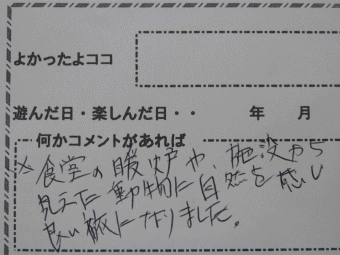 よかったよココ
遊んだ日・楽しんだ日・・　年　月
何かコメントがあれば
× 食堂の暖炉や、施設から
見えた動物に自然を感じ
良い旅になりました。